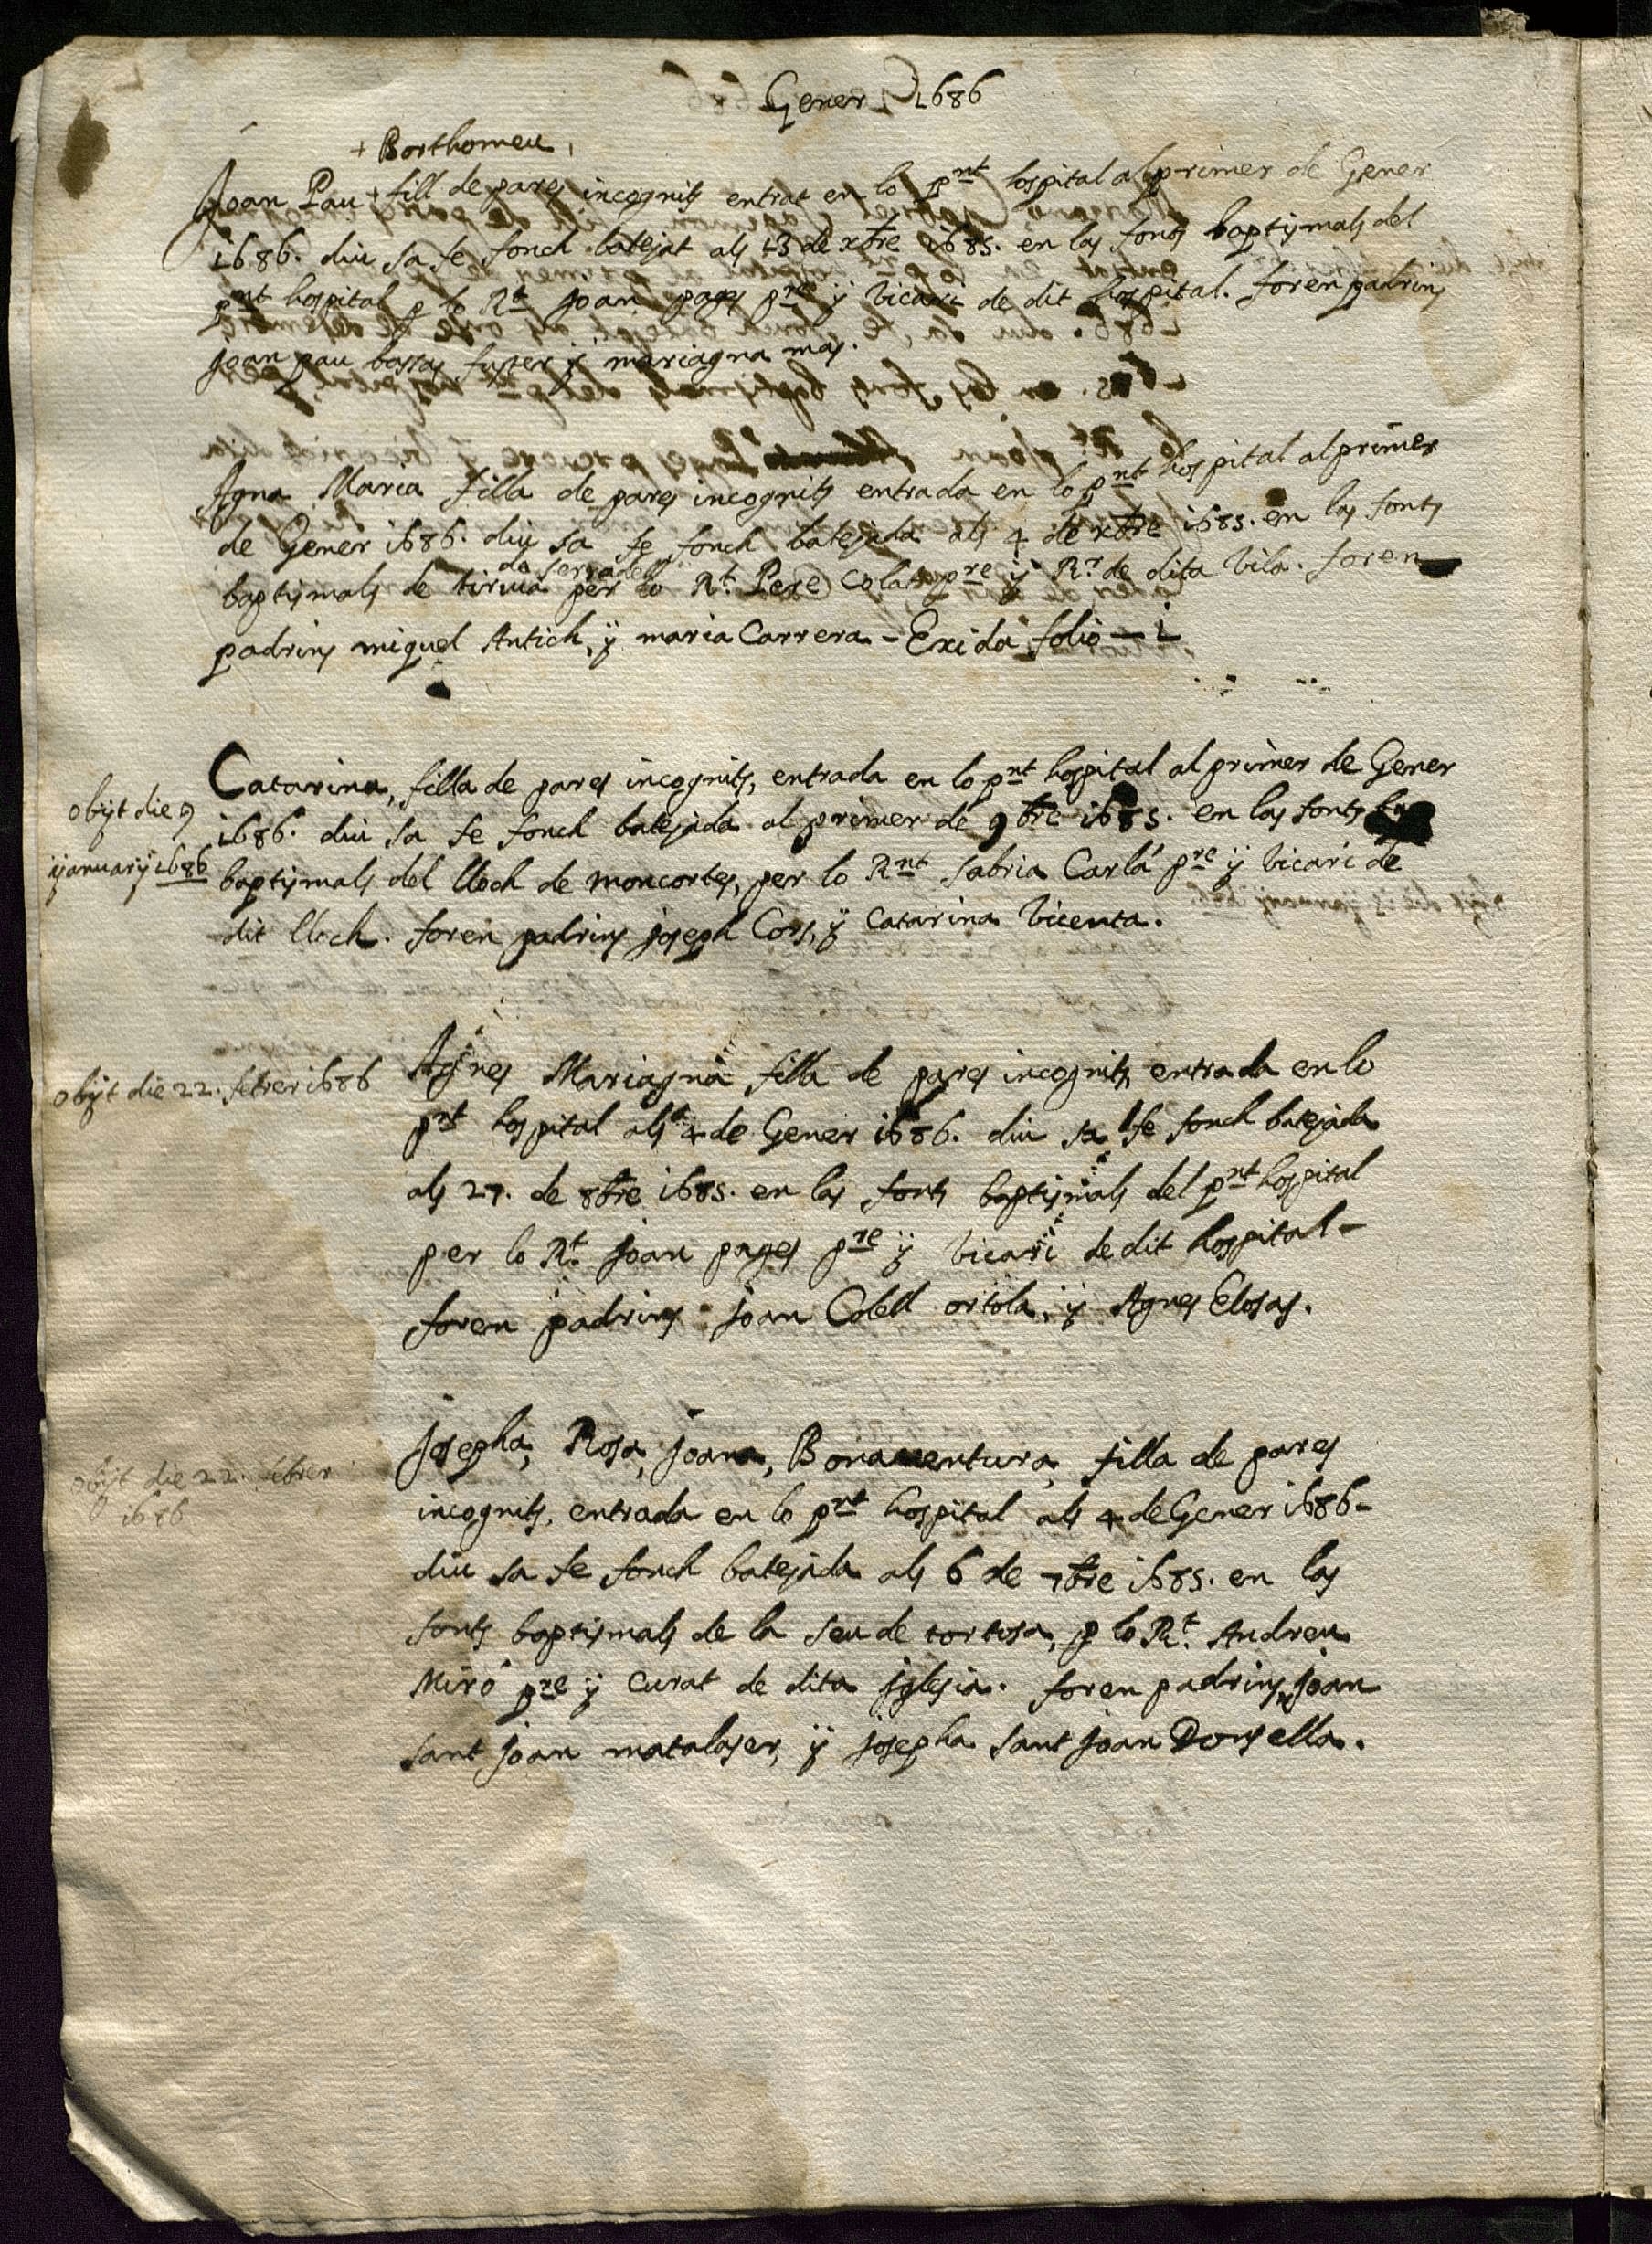 Gener 1686
+ Borthomeu
Joan Pau + fill de pares incognits entrat en lo pnt hospital al primer de Gener
1686. diu sa fe fonch batejat als 13 de xbre 1685. en las fonts baptismals del
pnt hospital p lo Rt Joan pages pre ÿ vicari de dit hospital. foren padrins
Joan pau bossas fuster ÿ mariagna mas.
Agna Maria filla de pares incognits entrada en lo pnt hospital al primer
de Gener 1686. diu sa fe fonch batejada als 4 de xbre 1685. en las fonts
de serradell
baptismals de tirvia per lo Rt. Pere Colat pre ÿ Rr de dita vila. foren
padrins miquel Antich, ÿ maria Carrera - Exida folio - 1
Catarina, filla de pares incognits, entrada en lo pnt hospital al primer de Gener
obijt die 9
1686. diu sa fe fonch batejada al primer de 9bre 1685. en las fonts
ÿanuarÿ 1686
baptismals del lloch de moncortes, per lo Rnt sabria Carlá pre ÿ vicari de
dit lloch. foren padrins joseph Cors, ÿ Catarina Vicenta.
obijt die 22. febrer 1686
Agnes Mariagna filla de pares incognits entrada en lo
pnt hospital als 4 de Gener 1686. diu sa fe fonch batejada
als 27. de 8bre 1685. en las fonts baptismals del pnt hospital
per lo Rt. Joan pages pre ÿ vicari de dit hospital -
foren padrins Joan Colell ortola, ÿ Agnes Closas.
Josepha, Rosa, Joana, Bonaventura, filla de pares
obijt die 22. febrer
1686
incognits, entrada en lo pnt hospital als 4 de Gener 1686 -
diu sa fe fonch batejada als 6 de 7bre 1685. en las
fonts baptismals de la seu de tortosa, p lo Rt. Andreu
Miró pre ÿ Curat de dita jglesia. foren padrins, Joan
sant Joan matalaser, ÿ josepha sant Joan Donsella.